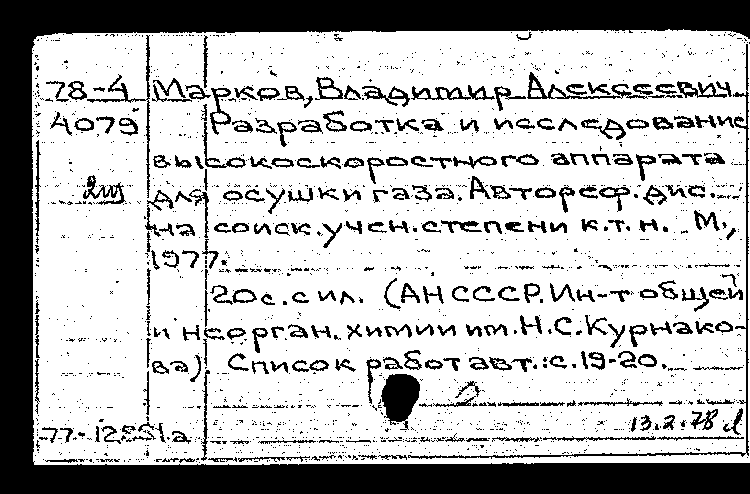 78-4 Марков, Владимир Алексеевич.
4079 Разработка и исследование
высокоскоростного аппарата
2ш для осушки газа. Автореф. дис.
на соиск. учен. степени к.т.н. М.,
1977.
20 с. с ил. (АН СССР. Ин-т общей
и неорган. химии им. Н.С. Курнако-
ва). Список работ авт.: с. 19-20.
13.2.78